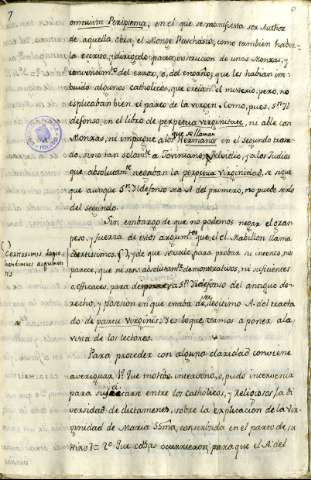 7
omnium Peripsema, en el que se manifiesta ser Author
de aquella obra, el Monge Paschasio, como tambien haber
la escrito, y dirigido para instruccion de unas Monxas, y
convencim.to del error, o, del engaño, que les habian im-
buido algunos catholicos, que creian el misterio, pero no
explicaban bien el parto de la virgen. Como, pues, S.n Il
defonso, en el libro de perpetua virginitate, ni able con
Monxas, ni impugne a los que se llaman Hermanos en el segundo trata
do, sino tan solam.te a Joviniano, Helvidio, y a los Judios
que absolutam.te negaban la perpetua Virginidad, se sigue
que aunque S.n Ildefonso sea A. del primero, no puede serlo
del segundo.
Sin embargo de que no podemos negar el gran
peso, y fuerza de estos argum.tos que el P. Mabillon llama
certissimos, y de que se vale para probar su intento, nos
parece, que ni son absolutam.te demonstrativos, ni suficientes
o eficaces, para despoxar a S.n Ildefonso del antiguo de-
recho, y posesion en que estaba de lexitimo A. del tracta
do de partu Virginis. Y es lo que vamos a poner a la
vista de los lectores.
Certissimis hisce
argumen
tis
Para proceder con alguna claridad conviene
averiguar: 1º Que motibo intervino, o, pudo intervenir
para suscitar entre los catholicos, y Religiosos la di
versidad de dictamenes, sobre la explicacion de la Vir
ginidad de Maria SSma, conservada en el parto de su
Hijo: 2º Que cosas ocurrieron, para que el A. del